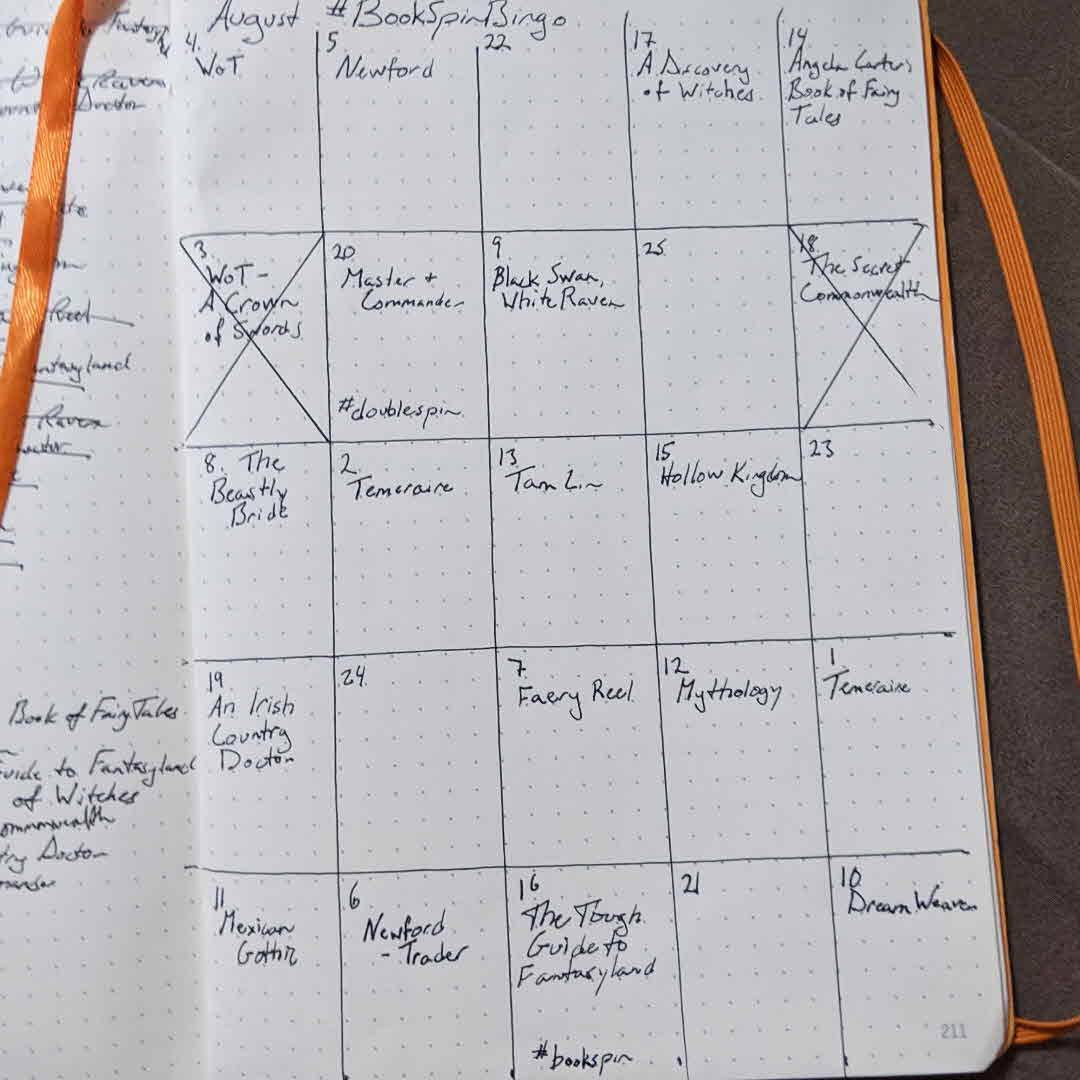 August #BookSpinBingo
4.
WoT
5
Newford
22
17
A Discovery
of Witches.
14
Angela Carter's
Book of Fairy
Tales
3.
WoT -
A Crown
of Swords
20
Master +
Commander
#doublespin
9
Black Swan,
White Raven
25
18.
The Secret
Commonwealth
8. The
Beastly
Bride
2
Temeraire
13
Tam Lin
15
Hollow Kingdom
23
19
An Irish
Country
Doctor
24
7
Faery Reel
12
Mythology
1
Temeraire
11
Mexican
Gothic
6
Newford
- Trader
16
The Tough
Guide to
Fantasyland
#bookspin
21
10
Dream Weaver
211
Raven
Doctor
Reel
Raven
Book of Fairy Tales
Guide to Fantasyland
of Witches
ommonwealth
try Doctor